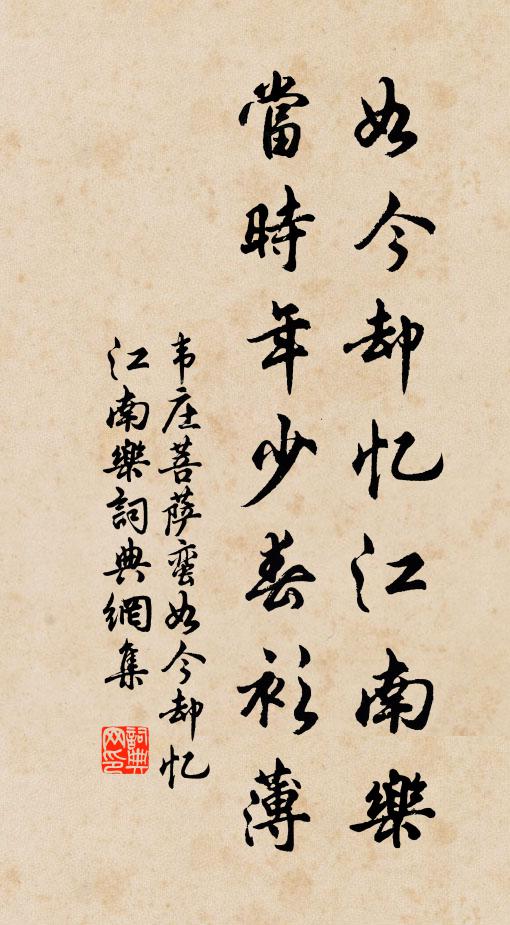 如今却忆江南樂
當時年少春衫薄
韦庄菩萨蛮如今却忆
江南樂詞典網集
詞典
网印